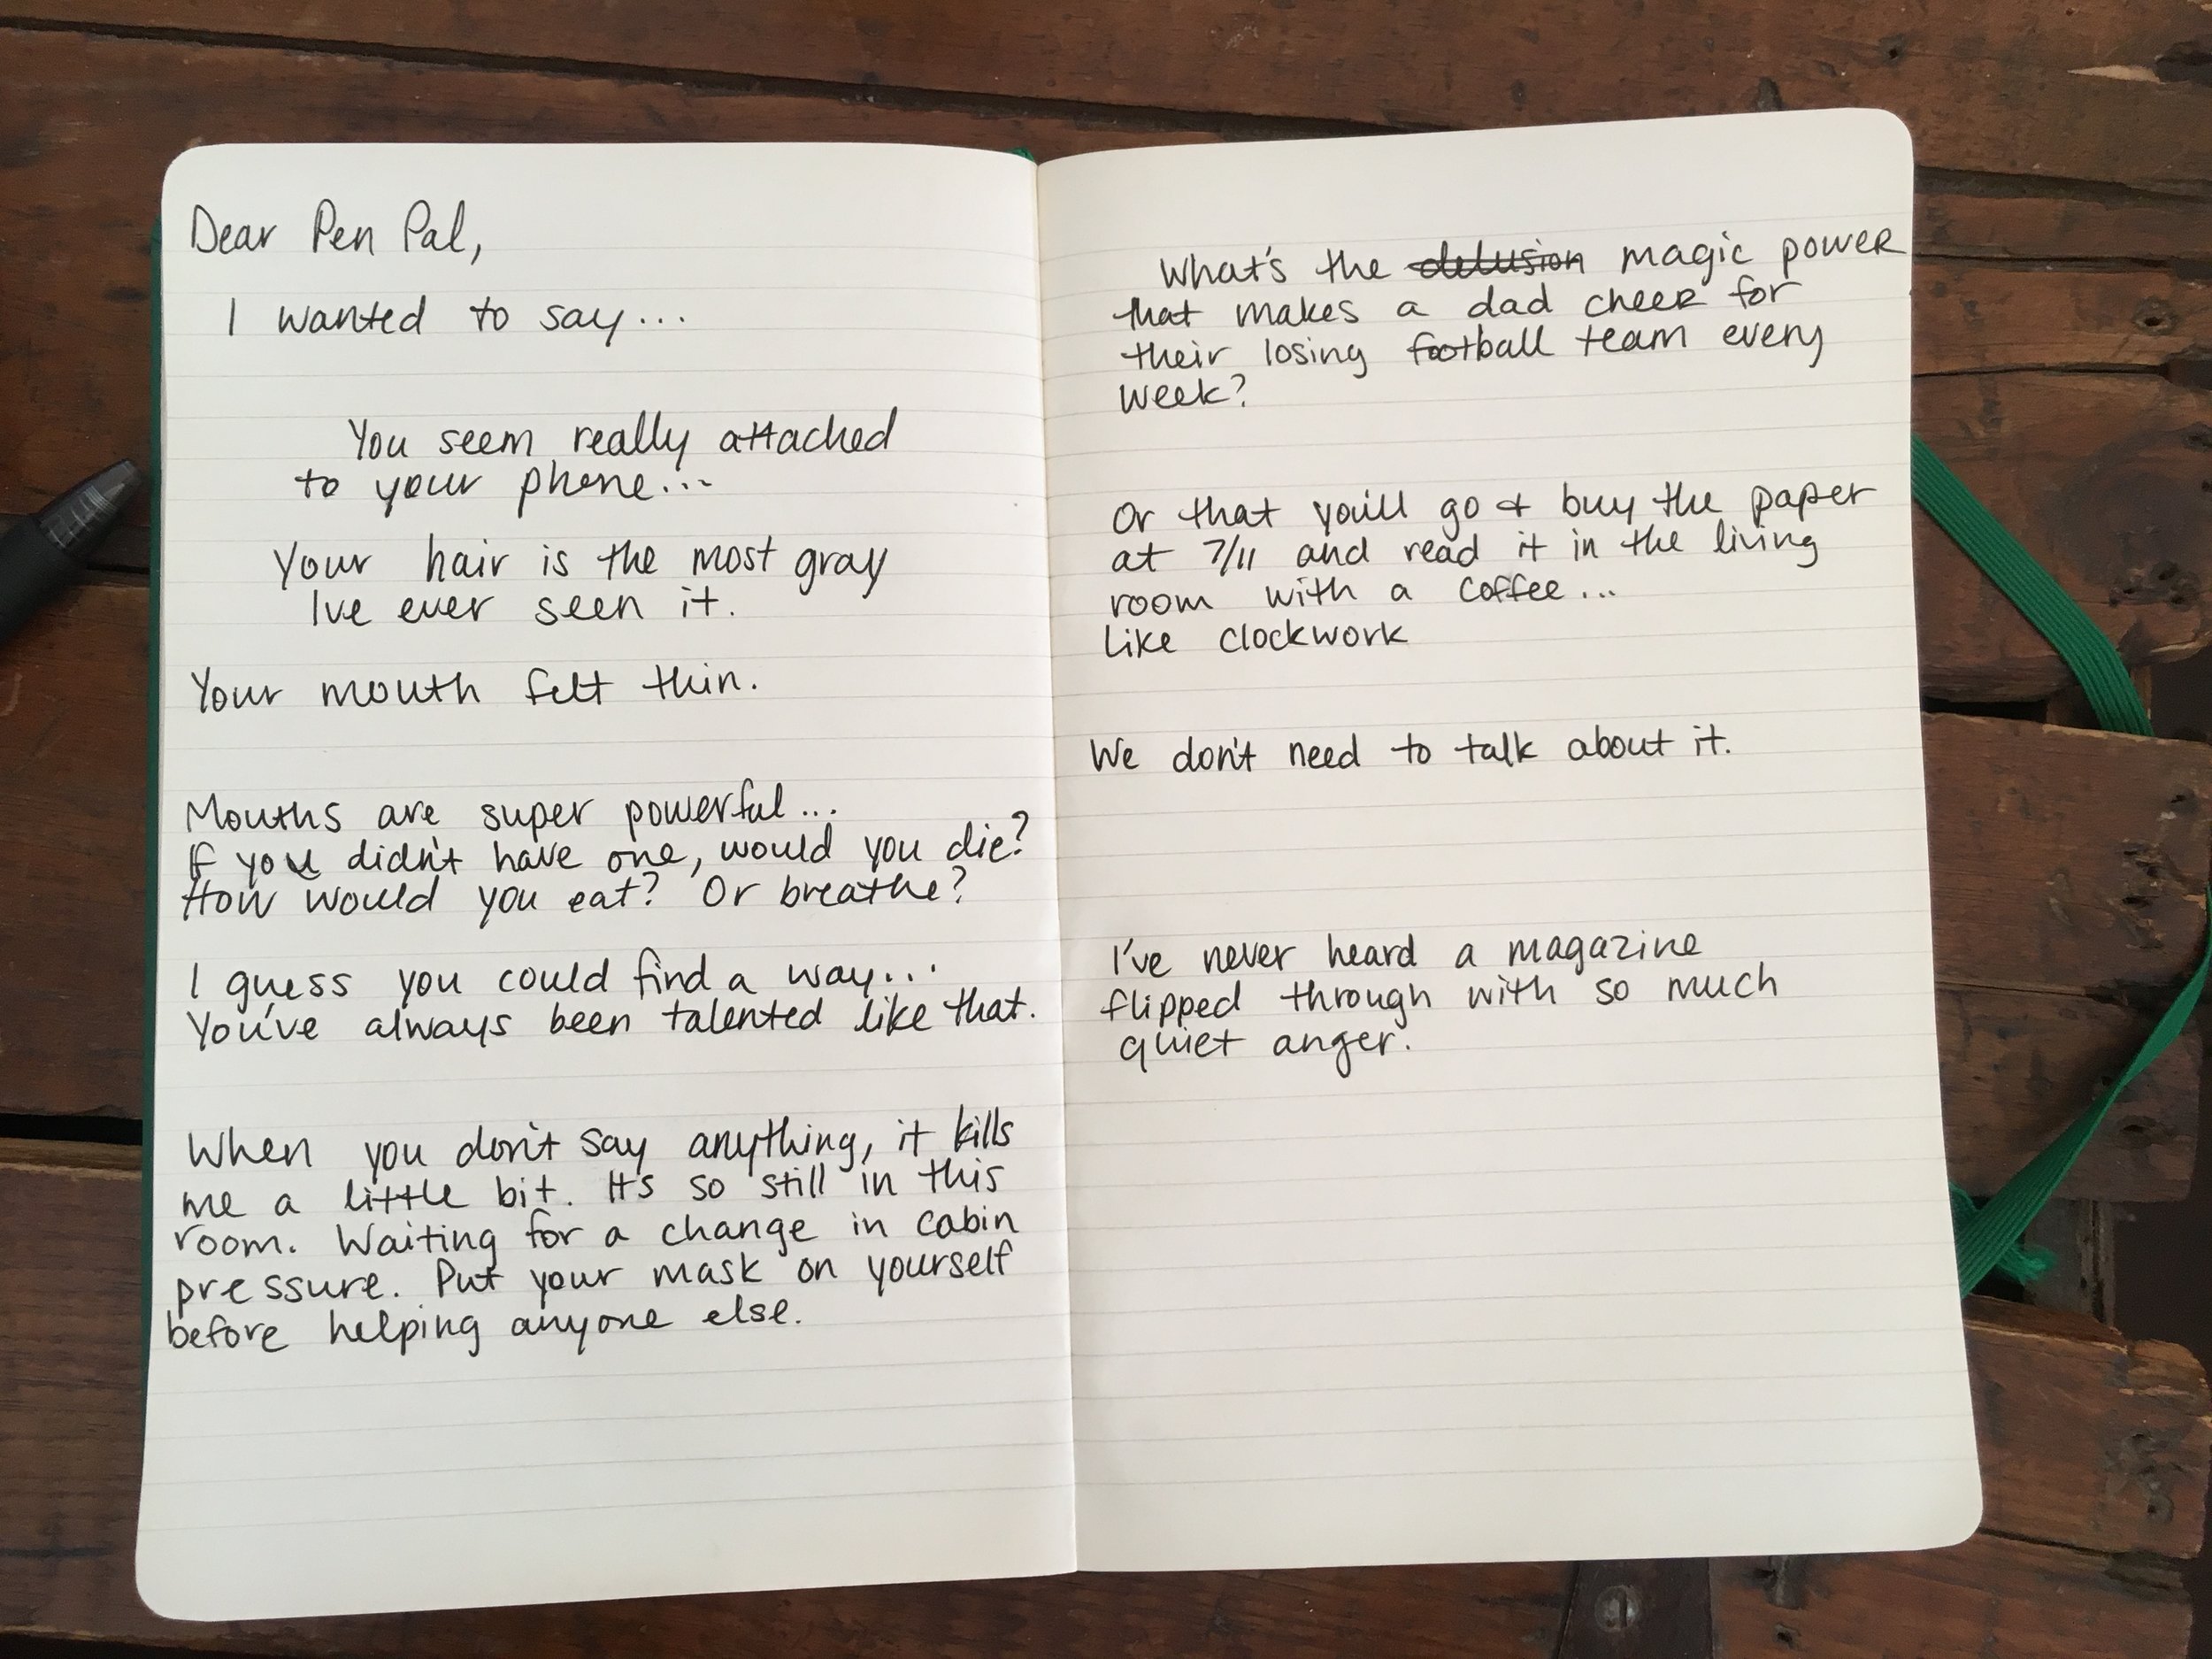 Dear Pen Pal,
I wanted to say...
You seem really attached
to your phone...
Your hair is the most gray
Ive ever seen it.
Your mouth felt thin.
Mouths are super powerful...
If you didn't have one, would you die?
How would you eat? Or breathe?
I guess you could find a way...
You've always been talented like that.
When you don't say anything, it kills
me a little bit. It's so still in this
room. Waiting for a change in cabin
pressure. Put your mask on yourself
before helping anyone else.
What's the delusion magic power
that makes a dad cheer for
their losing football team every
week?
Or that you'll go & buy the paper
at 7/11 and read it in the living
room with a coffee...
like clockwork
We don't need to talk about it.
I've never heard a magazine
flipped through with so much
quiet anger.